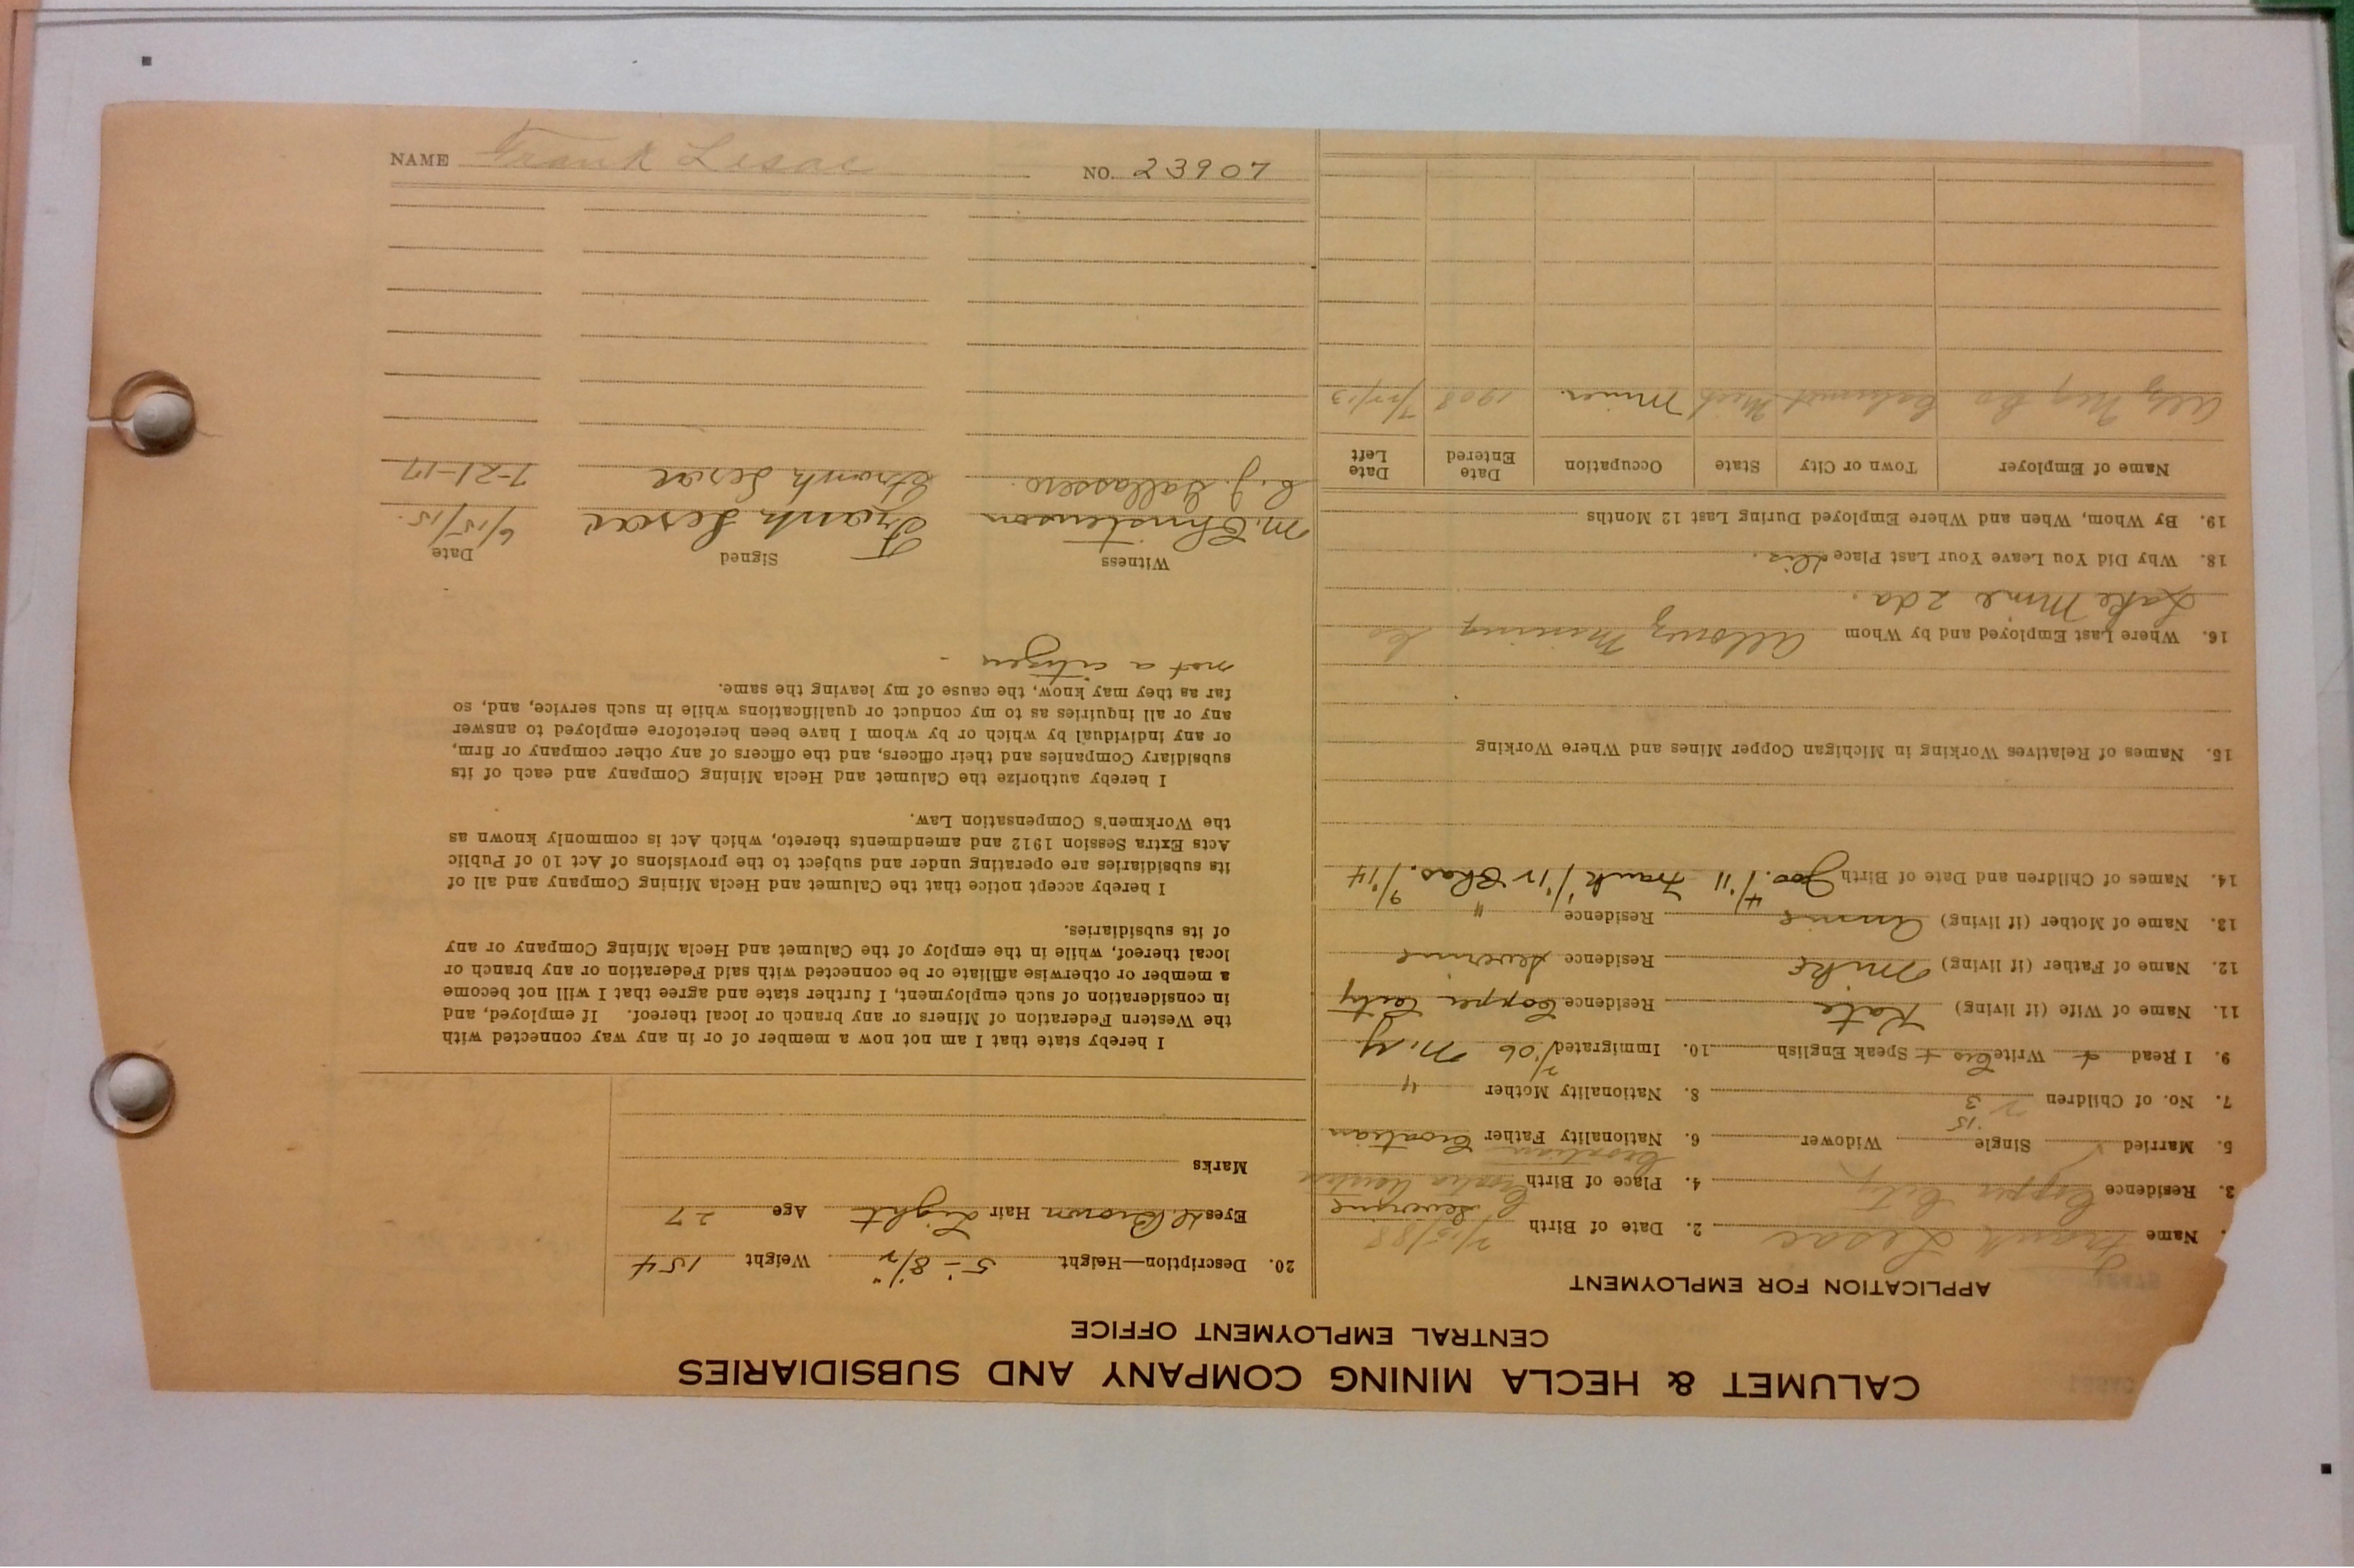 NAME Frank Lesac NO. 23907
CALUMET & HECLA MINING COMPANY AND SUBSIDIARIES
CENTRAL EMPLOYMENT OFFICE
APPLICATION FOR EMPLOYMENT
Name Frank Lesac 2. Date of Birth 2/15/88 Severine
3. Residence Copper City 4. Place of Birth Croatia Austria
Croatian
5. Married ✓ Single Widower 6. Nationality Father Croatian
15
7. No. of Children 3 8. Nationality Mother "
9. I Read + Write Cro + Speak English 10. Immigrated 2/06 N.Y.
11. Name of Wife (if living) Kate Residence Copper City
12. Name of Father (if living) Mike Residence Severine
13. Name of Mother (if living) Annie Residence "
14. Names of Children and Date of Birth Joo. 4/'11 Frank 1/'12 Chas. 9/'14
15. Names of Relatives Working in Michigan Copper Mines and Where Working
16. Where Last Employed and by Whom Allouez Mining Co
Lake Mine 2 da.
18. Why Did You Leave Your Last Place Dis.
19. By Whom, When and Where Employed During Last 12 Months
Name of Employer Town or City State Occupation Date Entered Date Left
Alz Mng Co Calumet Mich Miner 1908 7/22/13
20. Description—Height 5'-8 1/2" Weight 154
Eyes Lt. Brown Hair Light Age 27
Marks
I hereby state that I am not now a member of or in any way connected with
the Western Federation of Miners or any branch or local thereof. If employed, and
in consideration of such employment, I further state and agree that I will not become
a member or otherwise affiliate or be connected with said Federation or any branch or
local thereof, while in the employ of the Calumet and Hecla Mining Company or any
of its subsidiaries.
I hereby accept notice that the Calumet and Hecla Mining Company and all of
its subsidiaries are operating under and subject to the provisions of Act 10 of Public
Acts Extra Session 1912 and amendments thereto, which Act is commonly known as
the Workmen's Compensation Law.
I hereby authorize the Calumet and Hecla Mining Company and each of its
subsidiary Companies and their officers, and the officers of any other company or firm,
or any individual by which or by whom I have been heretofore employed to answer
any or all inquiries as to my conduct or qualifications while in such service, and, so
far as they may know, the cause of my leaving the same.
not a citizen -
Witness Signed Date
M. Christenson Frank Lesac 6/15/15.
C. J. Gallassero. Frank Lesac 7-21-17